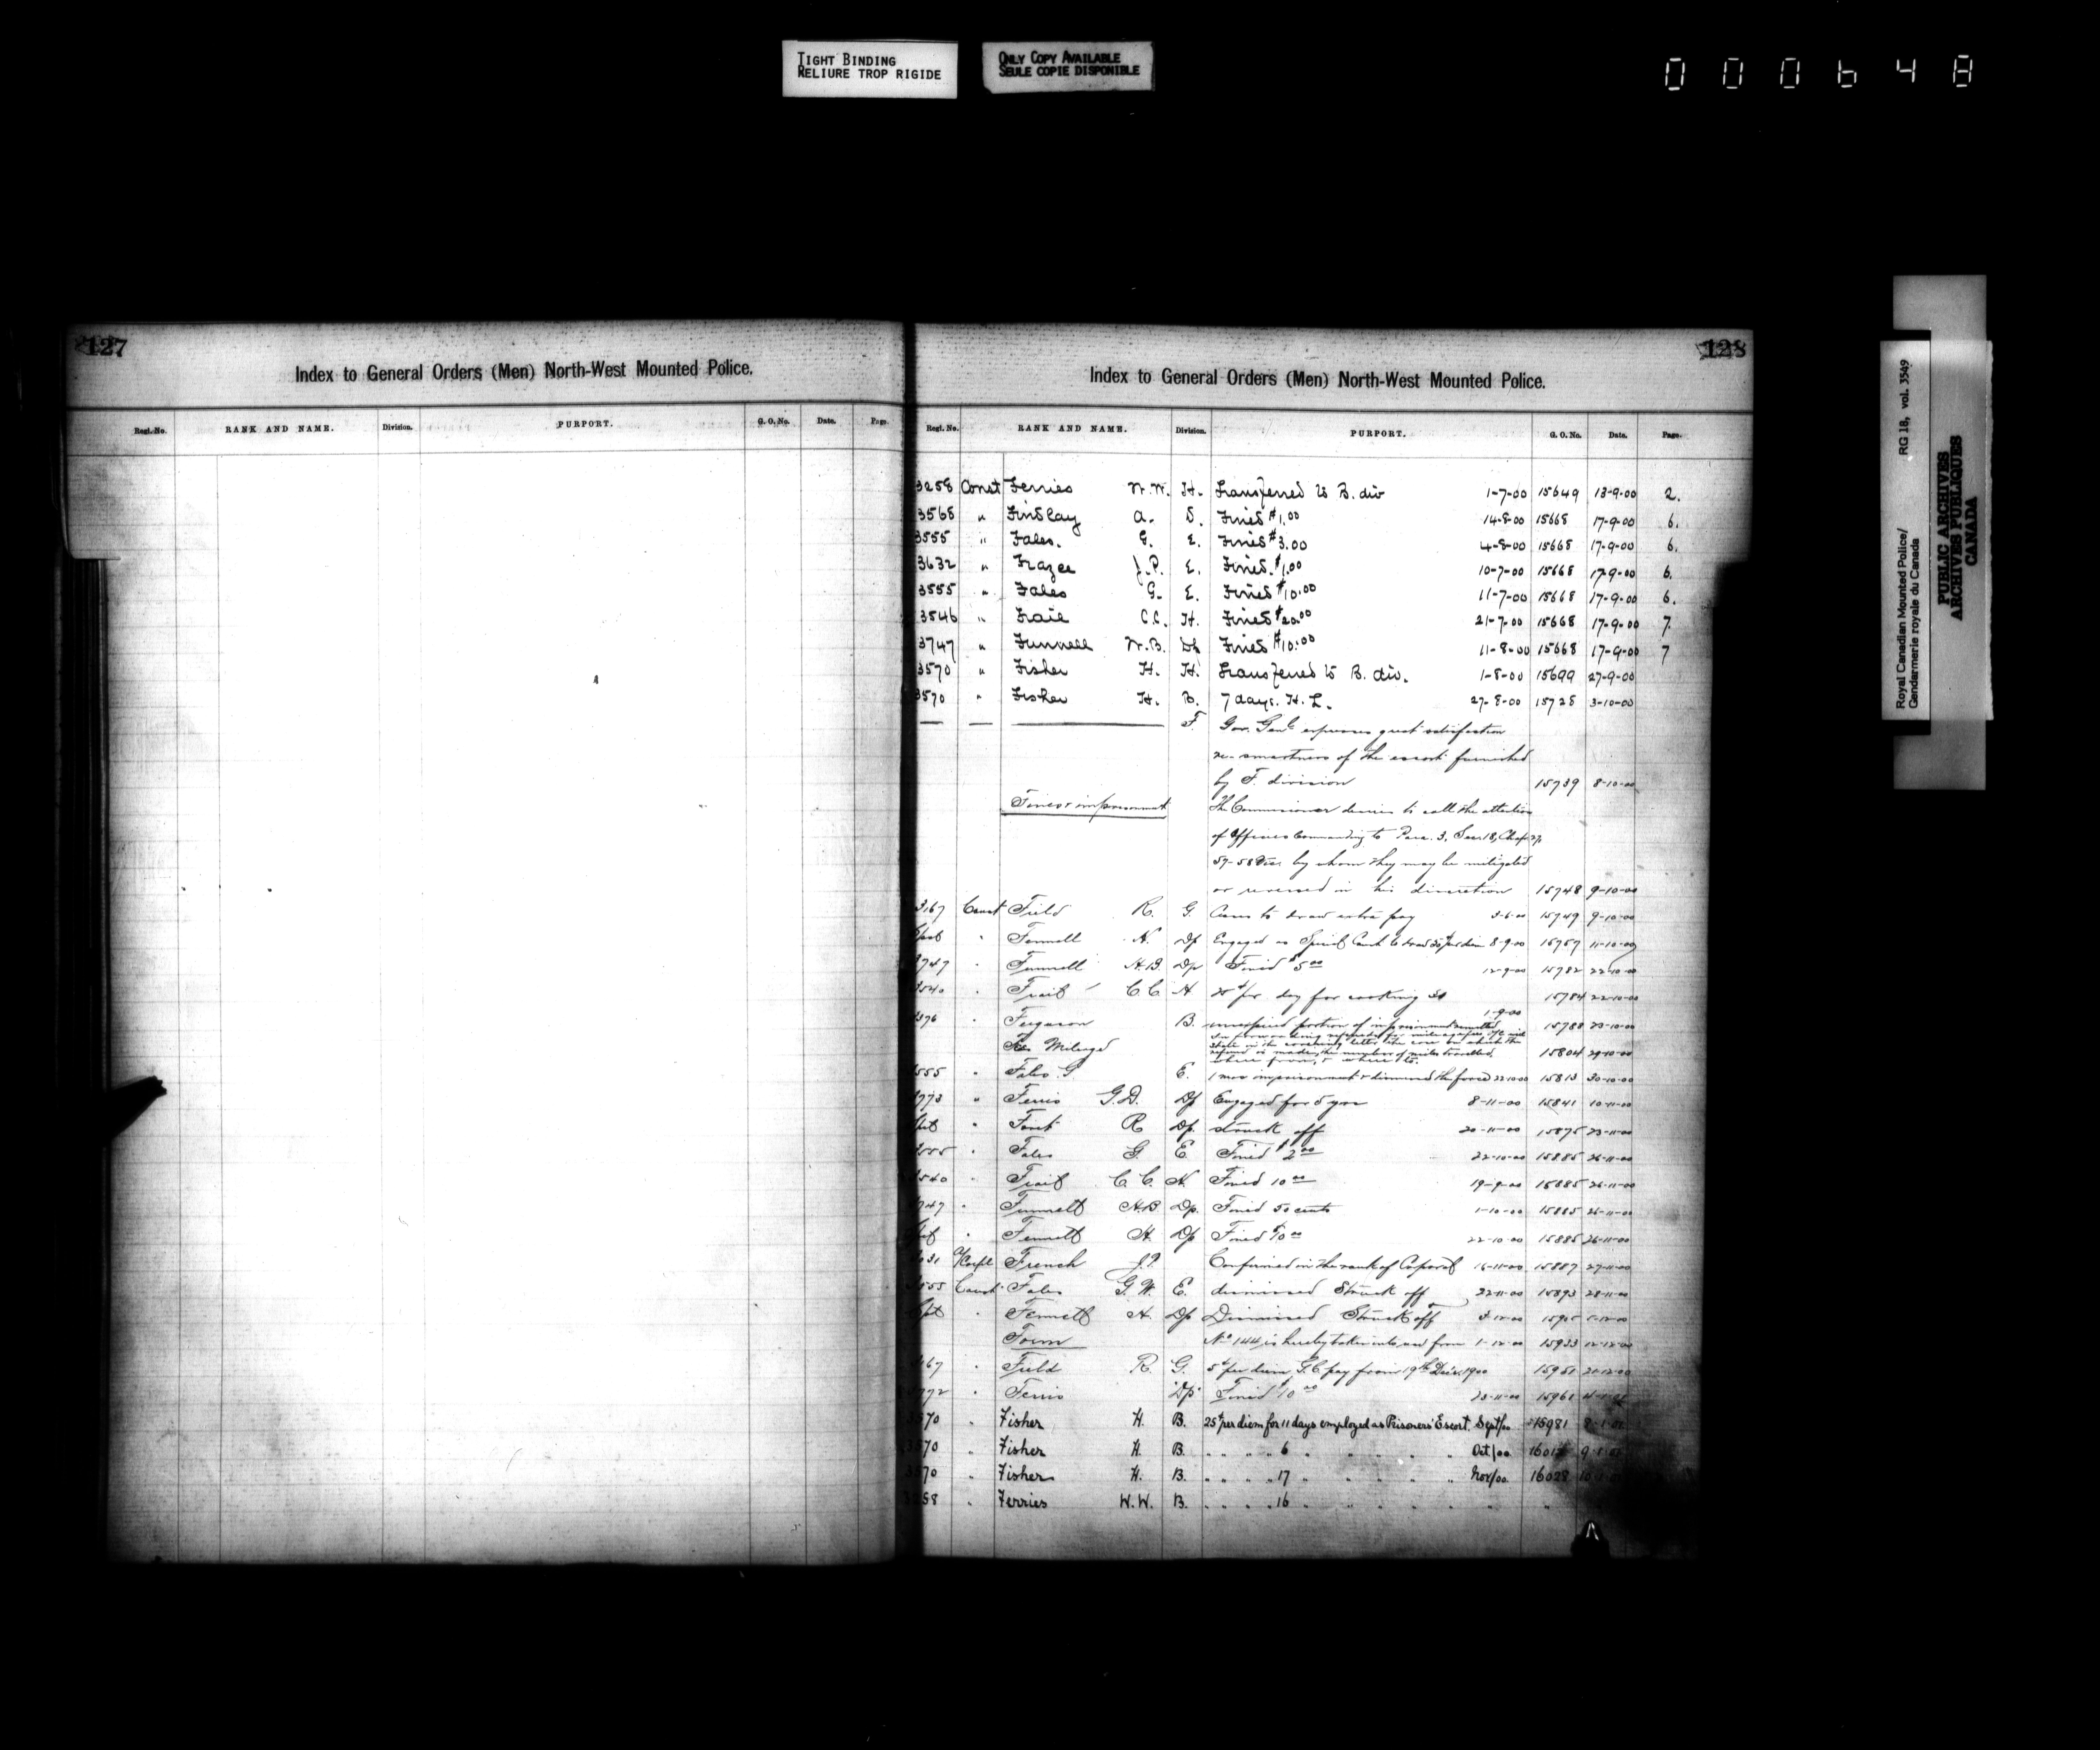 TIGHT BINDING
RELIURE TROP RIGIDE
ONLY COPY AVAILABLE
SEULE COPIE DISPONIBLE
000648
127
Index to General Orders (Men) North-West Mounted Police.
Regl. No. RANK AND NAME. Division. PURPORT. G. O. No. Date. Page.
128
Index to General Orders (Men) North-West Mounted Police.
Regl. No. RANK AND NAME. Division. PURPORT. G. O. No. Date. Page.
3258 Const Ferries W.W. H. Transferred to B. div 1-7-00 15649 13-9-00 2.
3565 " Findlay A. D. Fined $1.00 14-8-00 15668 17-9-00 6.
3555 " Fales. G. E. Fined $3.00 4-8-00 15668 17-9-00 6.
3632 " Frazer J.P. E. Fined. $1.00 10-7-00 15668 17-9-00 6.
3555 " Fales G. E. Fined $10.00 11-7-00 15668 17-9-00 6.
3546 " Frail C.C. H. Fined $20.00 21-7-00 15668 17-9-00 7.
3747 " Funnell W.B. Dp Fined $10.00 11-8-00 15668 17-9-00 7
3570 " Fisher H. H. Transferred to B. div. 1-8-00 15699 27-9-00
3570 " Fisher H. B. 7 days. H. L. 27-8-00 15728 3-10-00
F. Gov. Genl. expresses great satisfaction
re smartness of the escort furnished
by F. division 15739 8-10-00
Fines & imprisonment The Commissioner desires to call the attention
of Officers Commanding to Para. 3. Sec. 18, Chap. 27,
57-58 Vic. by whom they may be mitigated
or reversed in his discretion 15748 9-10-00
3167 Const Field R. G. Ceases to draw extra pay 3-6-00 15749 9-10-00
" Fennell H. Dp Engaged as Special Const to draw per diem 8-9-00 15757 11-10-00
3747 " Funnell H.B. Dp Fined $5.00 12-9-00 15782 22-10-00
" Frail C.C. H per day for cooking 15784 22-10-00
1-9-00
" Ferguson B. unexpired portion of imprisonment remitted 15788 23-10-00
Mileage 15804 29-10-00
3555 " Fales G E. 1 mos imprisonment & dismissed the force 22-10-00 15813 30-10-00
3773 " Ferris G.D. Dp Engaged for 5 yrs 8-11-00 15841 10-11-00
" R Dp. struck off 20-11-00 15875 23-11-00
3555 " Fales G. E. Fined $2.00 22-10-00 15885 26-11-00
" Frail C.C. H. Fined 10.00 19-9-00 15885 26-11-00
3747 " Funnell H.B Dp. Fined 50 cents 1-10-00 15885 26-11-00
" Fennell H. Dp Fined $10.00 22-10-00 15885 26-11-00
a/Corpl French J.P. Confirmed in the rank of Corporal 16-11-00 15887 27-11-00
3555 Const Fales G.W. E. dismissed Struck off 22-11-00 15893 28-11-00
" Fennell H. Dp Dismissed Struck off
Form No 144 is hereby taken into use from 1-12-00 15933 12-12-00
3167 " Field R. G. 5¢ per diem G.C. pay from 19th Decr. 1900 15951 21-12-00
" Ferris Dp Fined $10.00 23-11-00 15961
3570 " Fisher H. B. 25¢ per diem for 11 days employed as Prisoners' Escort. Sept/00 15981 8-1-01
3570 " Fisher H. B. " " " " 6 " " " " " Oct/00 9-1-01
3570 " Fisher H. B. " " " " 17 " " " " " Nov/00 16028 10-1-01
3258 " Ferries W.W. B. " " " " 16 " " " " " "
Royal Canadian Mounted Police/ RG 18, vol. 3549
Gendarmerie royale du Canada
PUBLIC ARCHIVES
ARCHIVES PUBLIQUES
CANADA